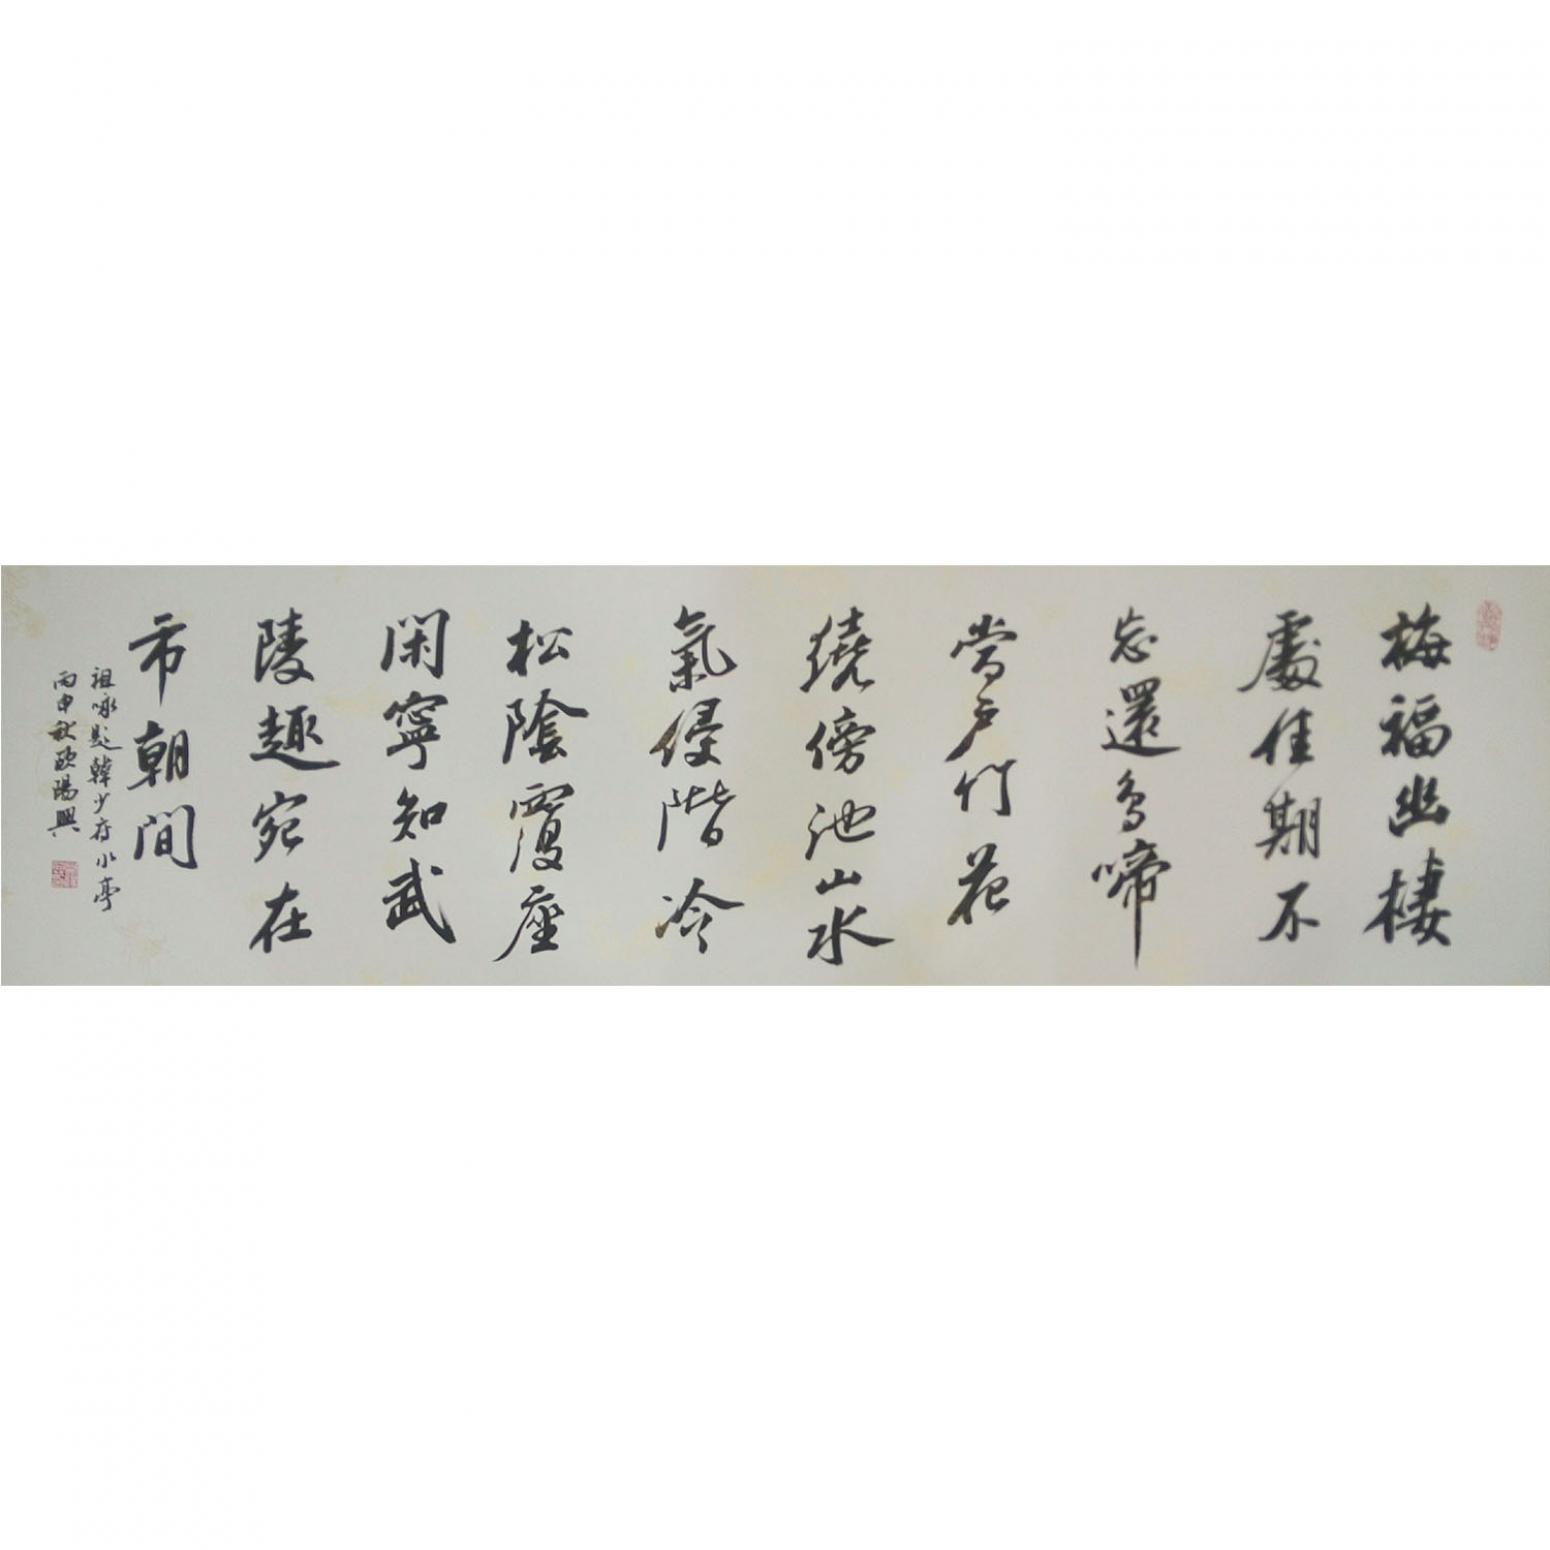 梅福幽棲
處佳期不
忘還鳥啼
當戶竹花
繞傍池山水
氣侵階冷
松陰覆座
閑寧知武
陵趣宛在
市朝間
祖咏題韓少府水亭
丙申秋歐陽興